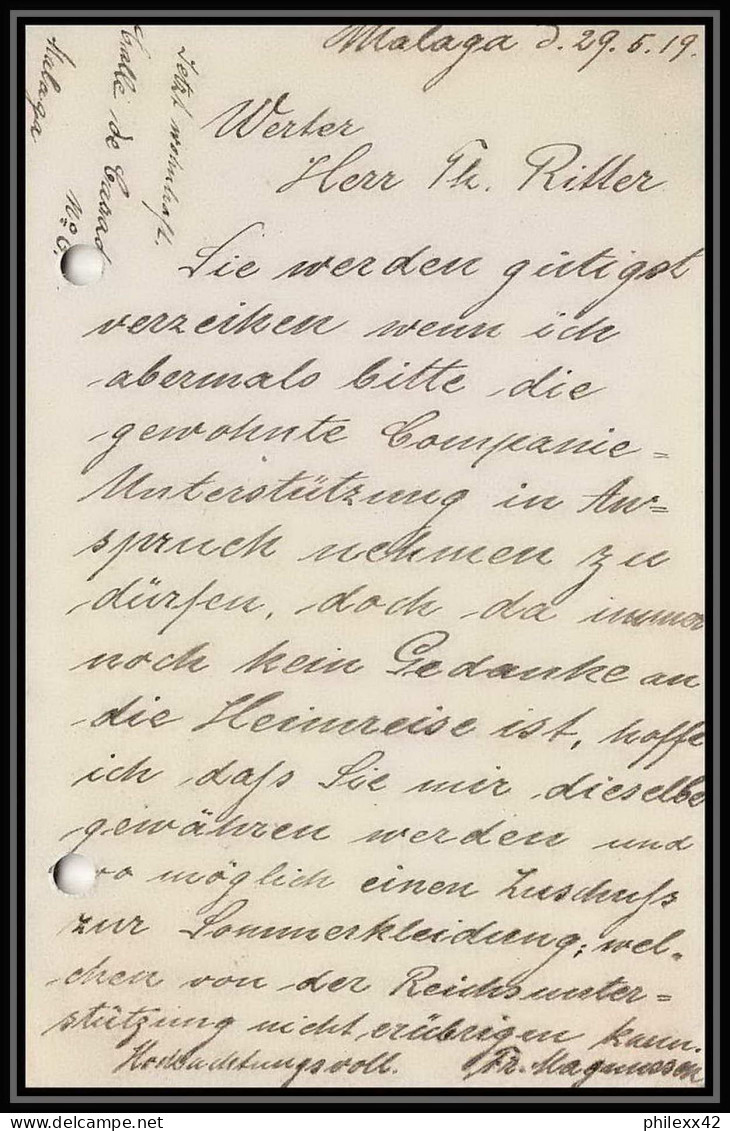 Malaga d. 29.5.19.
Werter
Herr Th. Ritter
Sie werden gütigst
verzeihen wenn ich
abermals bitte die
gewohnte Companie-
Unterstützung in An-
spruch nehmen zu
dürfen, doch da immer
noch kein Gedanke an
die Heimreise ist, hoffe
ich daß Sie mir dieselbe
gewähren werden und
wo möglich einen Zuschuß
zur Sommerkleidung, wel-
chen von der Reichsunter-
stützung nicht erübrigen kann.
Hochachtungsvoll. Fr. Magnussen
Jetzt wohnhaft.
Calle de
No 6.
Malaga
philexx42